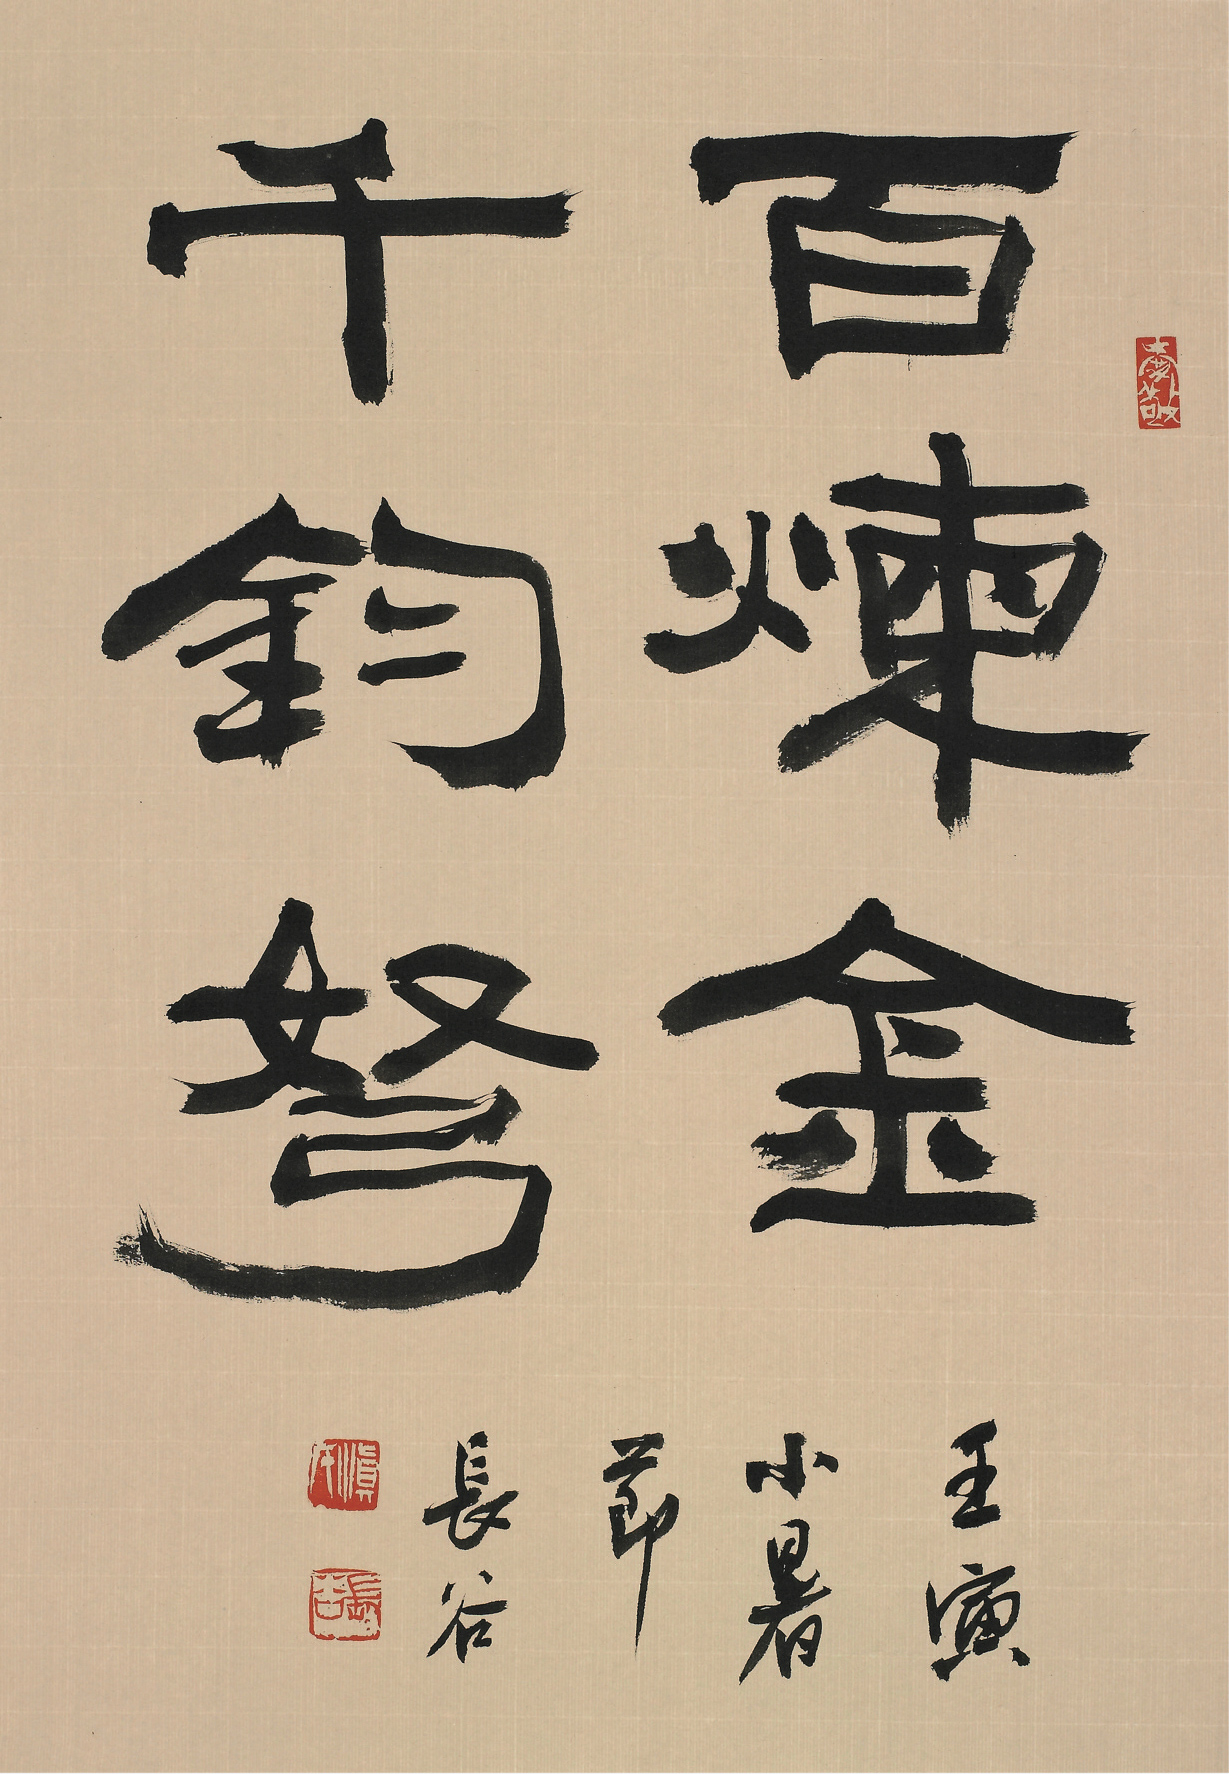 百煉金
千鈞弩
壬寅
小暑
節
長谷